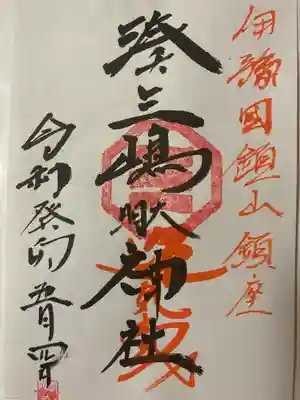 伊豫國鎮山鎮座
湊三嶋神社
令和癸卯五月四日